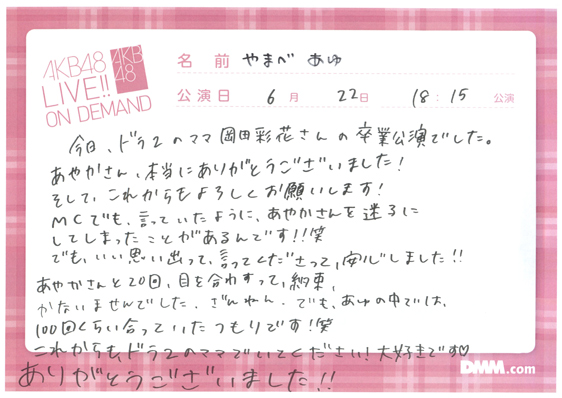 AKB48
LIVE!!
ON DEMAND
AKB
48
名前 やまべ あゆ
公演日 6月 22日 18:15 公演
今日、ドラ2のママ岡田彩花さんの卒業公演でした。
あやかさん、本当にありがとうございました!
そして、これからもよろしくお願いします!
MCでも、言っていたように、あやかさんを迷子に
してしまったことがあるんです!!笑
でも、いい思い出って、言ってくださって、安心しました!!
あやかさんと20回、目を合わすって、約束、
かないませんでした。ざんねん。でも、あゆの中では、
100回くらい合っていたつもりです!笑
これからも、ドラ2のママでいてください!大好きです♡
ありがとうございました!!
DMM.com